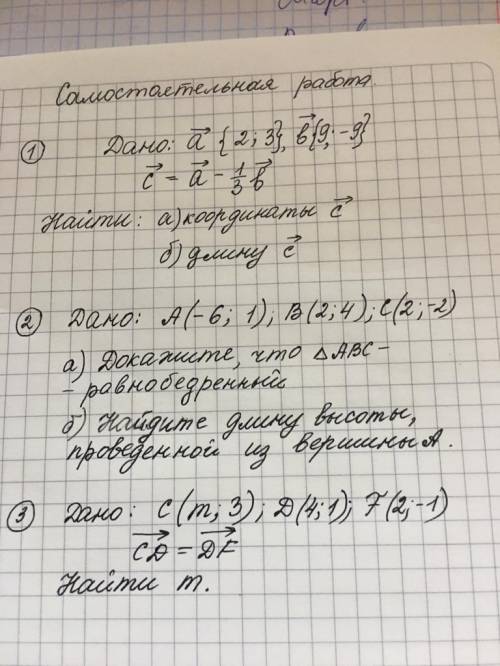 Самостоятельная работа.
① Дано: a⃗ {2; 3}, b⃗ {9; -9}
c⃗ = a⃗ - 1/3 b⃗
Найти: а) координаты c⃗
б) длину c⃗
② Дано: A(-6; 1); B(2; 4); C(2; -2)
а) Докажите, что △ABC -
- равнобедренный
б) Найдите длину высоты,
проведенной из вершины A.
③ Дано: C(m; 3); D(4; 1); F(2; -1)
C͞D⃗ = D͞F⃗
Найти m.